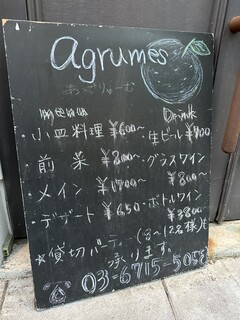 agrumes
あぐりゅーむ
menu
Drink
・小皿料理 ¥600〜
・生ビール ¥700
・前菜 ¥800〜
・グラスワイン ¥800〜
・メイン ¥1700〜
・ボトルワイン ¥3800〜
・デザート ¥650〜
★貸切パーティ (8〜12名様)も
承ります。
03-6715-5058